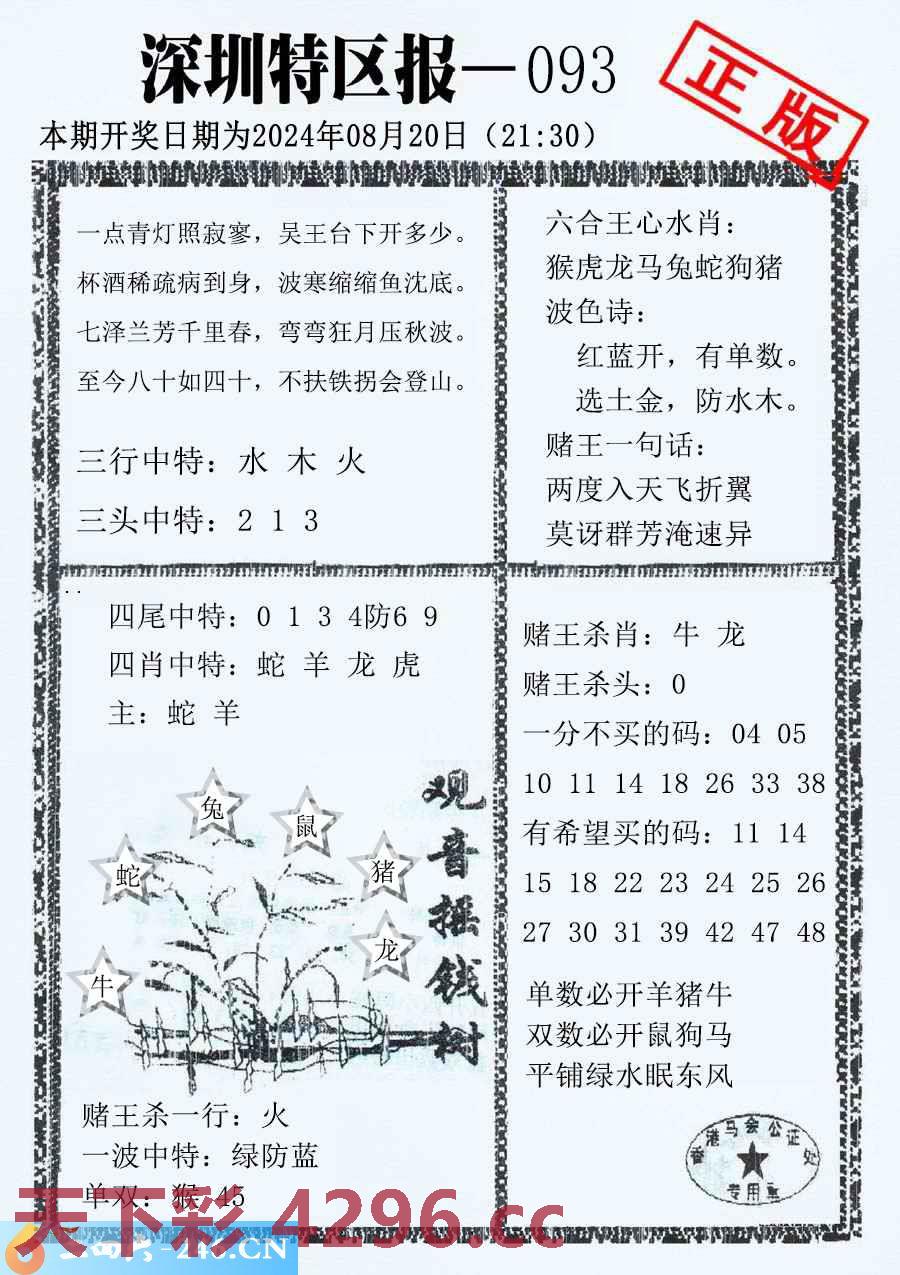 深圳特区报—093
正版
本期开奖日期为2024年08月20日（21:30）
一点青灯照寂寥，吴王台下开多少。
杯酒稀疏病到身，波寒缩缩鱼沈底。
七泽兰芳千里春，弯弯狂月压秋波。
至今八十如四十，不扶铁拐会登山。
三行中特：水 木 火
三头中特：2 1 3
六合王心水肖：
猴虎龙马兔蛇狗猪
波色诗：
红蓝开，有单数。
选土金，防水木。
赌王一句话：
两度入天飞折翼
莫讶群芳淹速异
四尾中特：0 1 3 4防6 9
四肖中特：蛇 羊 龙 虎
主：蛇 羊
兔
鼠
蛇
猪
龙
牛
观音摇钱树
赌王杀一行：火
一波中特：绿防蓝
单双：猴 45
赌王杀肖：牛 龙
赌王杀头：0
一分不买的码：04 05
10 11 14 18 26 33 38
有希望买的码：11 14
15 18 22 23 24 25 26
27 30 31 39 42 47 48
单数必开羊猪牛
双数必开鼠狗马
平铺绿水眠东风
香港马会公证处
专用章
天下彩 4296.cc
-246.CN